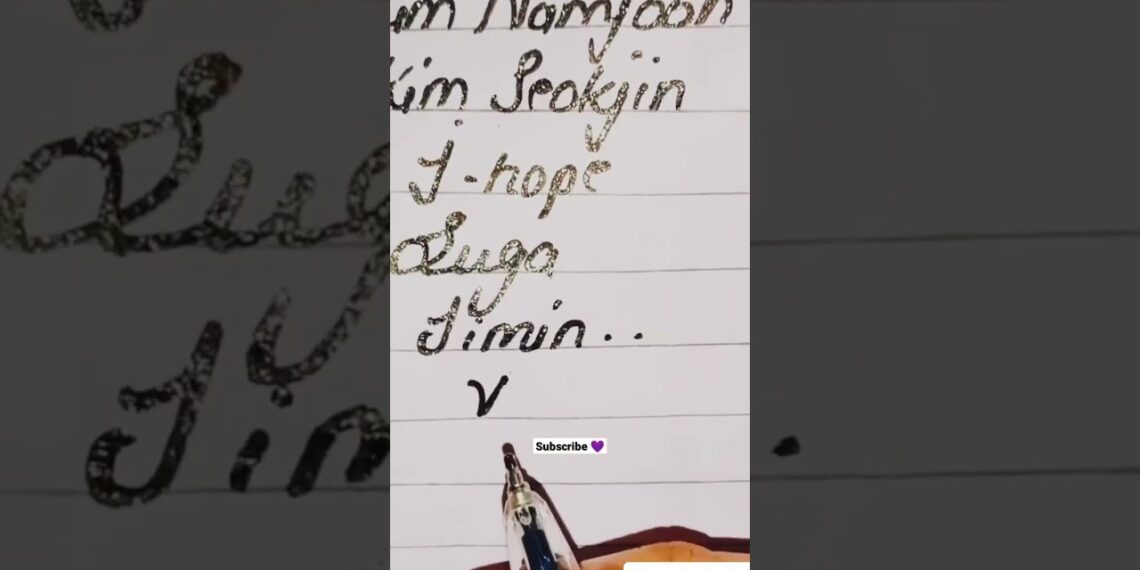 Kim Namjoon
Kim Seokjin
J-hope
Suga
Jimin..
V
Subscribe 💜